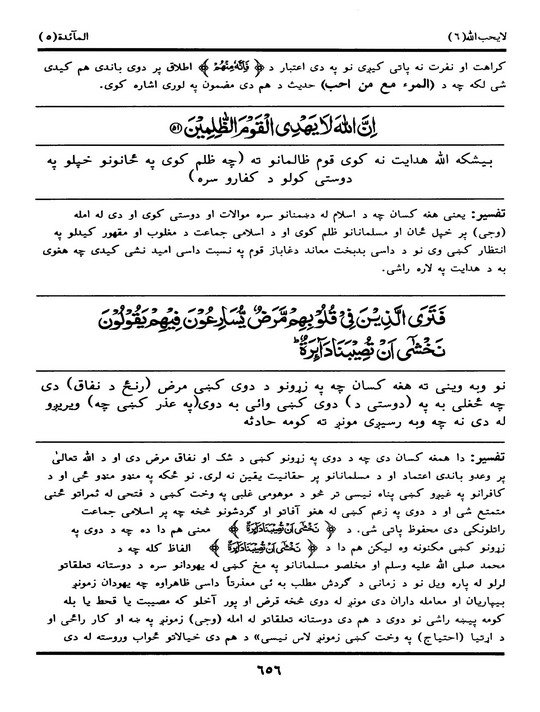 لايحب الله (٦)
المآئدة (٥)
کراهت او نفرت نه پاتی کیږی نو په دی اعتبار د ﴿ فَاِنَّهٗ مِنْهُمْ ﴾ اطلاق پر دوی باندی هم کیدی
شی لکه چه د (المرء مع من احب) حدیث د هم دی مضمون په لوری اشاره کوی.
اِنَّ اللّٰهَ لَا يَهْدِى الْقَوْمَ الظّٰلِمِيْنَ ﴿٥١﴾
بیشکه الله هدایت نه کوی قوم ظالمانو ته (چه ظلم کوی په ځانونو خپلو په
دوستی کولو د کفارو سره)
تفسیر: یعنی هغه کسان چه د اسلام له دښمنانو سره موالات او دوستی کوی او دی له امله
(وجی) پر خپل ځان او مسلمانانو ظلم کوی او د اسلامی جماعت د مغلوب او مقهور کیدلو په
انتظار کښی وی نو د داسی بدبخت معاند دغاباز قوم په نسبت داسی امید نشی کیدی چه هغوی
به د هدایت په لاره راشی.
فَتَرَى الَّذِيْنَ فِىْ قُلُوْبِهِمْ مَّرَضٌ يُّسَارِعُوْنَ فِيْهِمْ يَقُوْلُوْنَ
نَخْشٰٓى اَنْ تُصِيْبَنَا دَآئِرَةٌ ؕ
نو وبه وینی ته هغه کسان چه په زړونو د دوی کښی مرض (رنځ د نفاق) دی
چه ځغلی به په (دوستی د) دوی کښی وائی به دوی(په عذر کښی چه) ویریږو
له دی نه چه وبه رسیږی مونږ ته کومه حادثه
تفسیر: دا همغه کسان دی چه د دوی په زړونو کښی د شک او نفاق مرض دی او د الله تعالیٰ
پر وعدو باندی اعتماد او د مسلمانانو پر حقانیت یقین نه لری. نو ځکه په منډو منډو ځی او د
کافرانو په غیږو کښی پناه نیسی تر څو د موهومی غلبی په وخت کښی د فتحی له ثمراتو ځنی
متمتع شی او د دوی په زعم کښی له هغو آفاتو او ګردشونو څخه چه پر اسلامی جماعت
راتلونکی دی محفوظ پاتی شی. د ﴿ نَخْشٰٓى اَنْ تُصِيْبَنَا دَآئِرَةٌ ﴾ معنی هم دا ده چه د دوی په
زړونو کښی مکنونه وه لیکن هم دا د ﴿ نَخْشٰٓى اَنْ تُصِيْبَنَا دَآئِرَةٌ ﴾ الفاظ کله چه د
محمد صلی الله علیه وسلم او مخلصو مسلمانانو په مخ کښی له یهودانو سره د دوستانه تعلقاتو
لرلو له پاره ویل نو د زمانی د ګردش مطلب به ئی معذرتاً داسی ظاهراوه چه یهودان زمونږ
بیپاریان او معامله داران دی مونږ له دوی څخه قرض او پور آخلو که مصیبت یا قحط یا بله
کومه پیښه راشی نو دوی د هم دی دوستانه تعلقاتو له امله (وجی) زمونږ په ښه او کار راځی او
د اړتیا (احتیاج) په وخت کښی زمونږ لاس نیسی» د هم دی خیالاتو ځواب وروسته له دی
٦٥٦